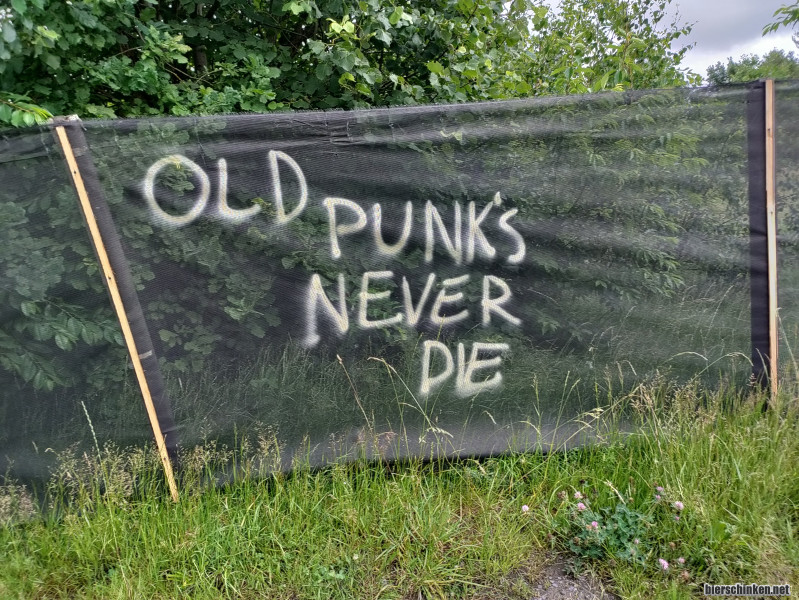 OLD
PUNK'S
NEVER
DIE
bierschinken.net